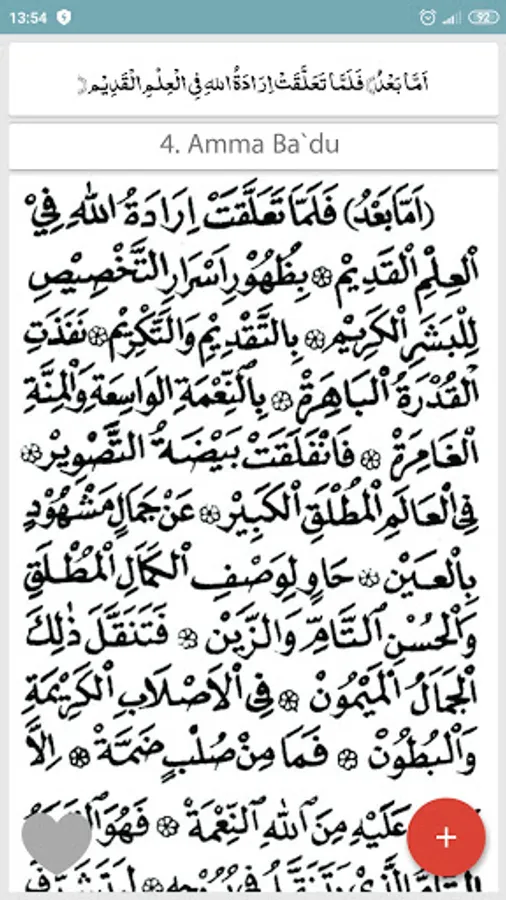 13:54
92
اَمَّا بَعْدُ۞ فَلَمَّا تَعَلَّقَتْ اِرَادَةُ اللهِ فِي الْعِلْمِ الْقَدِيْمِ۞
4. Amma Ba`du
(اَمَّا بَعْدُ) فَلَمَّا تَعَلَّقَتْ اِرَادَةُ اللهِ فِيْ
الْعِلْمِ الْقَدِيْمْ ۞ بِظُهُوْرِ اَسْرَارِ التَّخْصِيْصِ
لِلْبَشَرِ الْكَرِيْمْ ۞ بِالتَّقْدِيْمِ وَالتَّكْرِيْمْ ۞ نَفَذَتِ
الْقُدْرَةُ الْبَاهِرَةْ ۞ بِالنِّعْمَةِ الْوَاسِعَةِ وَالْمِنَّةِ
الْغَامِرَةْ ۞ فَانْفَلَقَتْ بَيْضَةُ التَّصْوِيْرْ ۞
فِي الْعَالَمِ الْمُطْلَقِ الْكَبِيْرْ ۞ عَنْ جَمَالٍ مَشْهُوْدٍ
بِالْعَيْنْ ۞ حَاوٍ لِوَصْفِ الْكَمَالِ الْمُطْلَقِ
وَالْحُسْنِ التَّامِّ وَالزَّيْنْ ۞ فَتَنَقَّلَ ذٰلِكَ
الْجَمَالُ الْمَيْمُوْنْ ۞ فِي الْاَصْلَابِ الْكَرِيْمَةِ
وَالْبُطُوْنْ ۞ فَمَا مِنْ صُلْبٍ ضَمَّهْ ۞ اِلَّا
عَلَيْهِ مِنَ اللهِ النِّعْمَةْ ۞ فَهُوَ
الَّذِيْ يَتَنَقَّلُ فِيْ